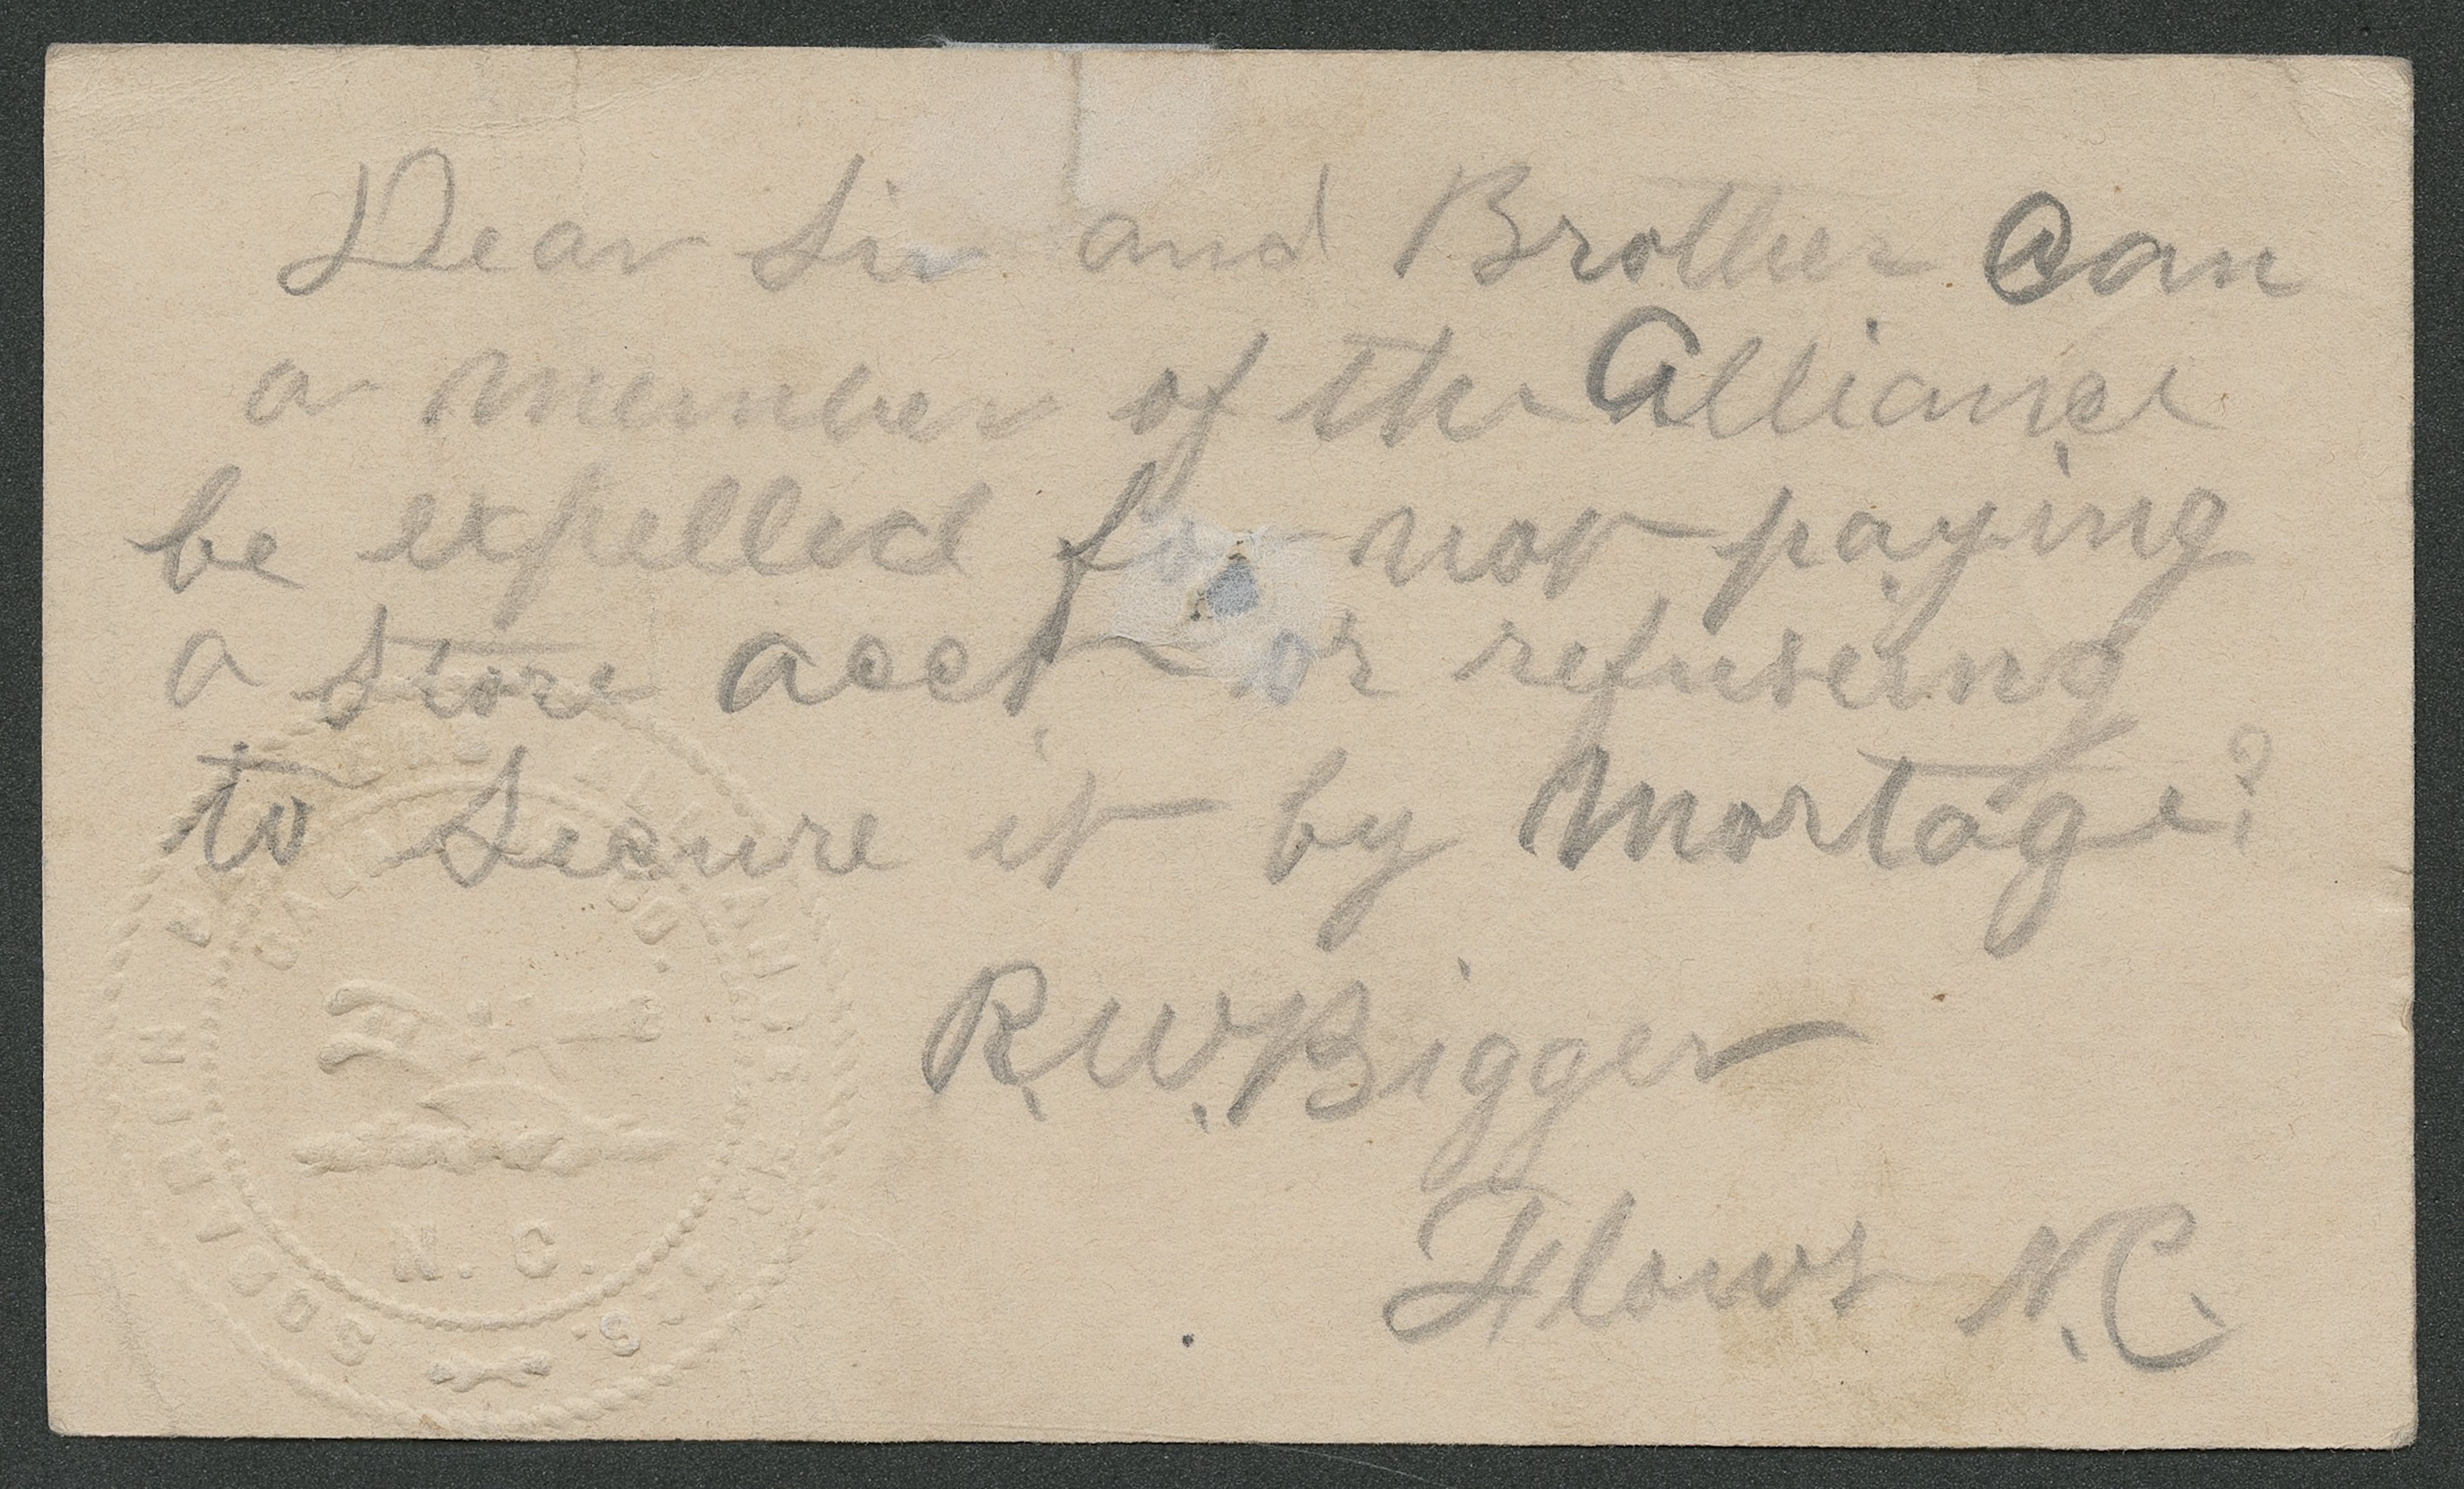 Dear Sir and Brother Can
a member of the Alliance
be expelled for not paying
a store acct or refuseing
to Secure it by Mortage?
R. W. Bigger
Flows N.C.
N. C.